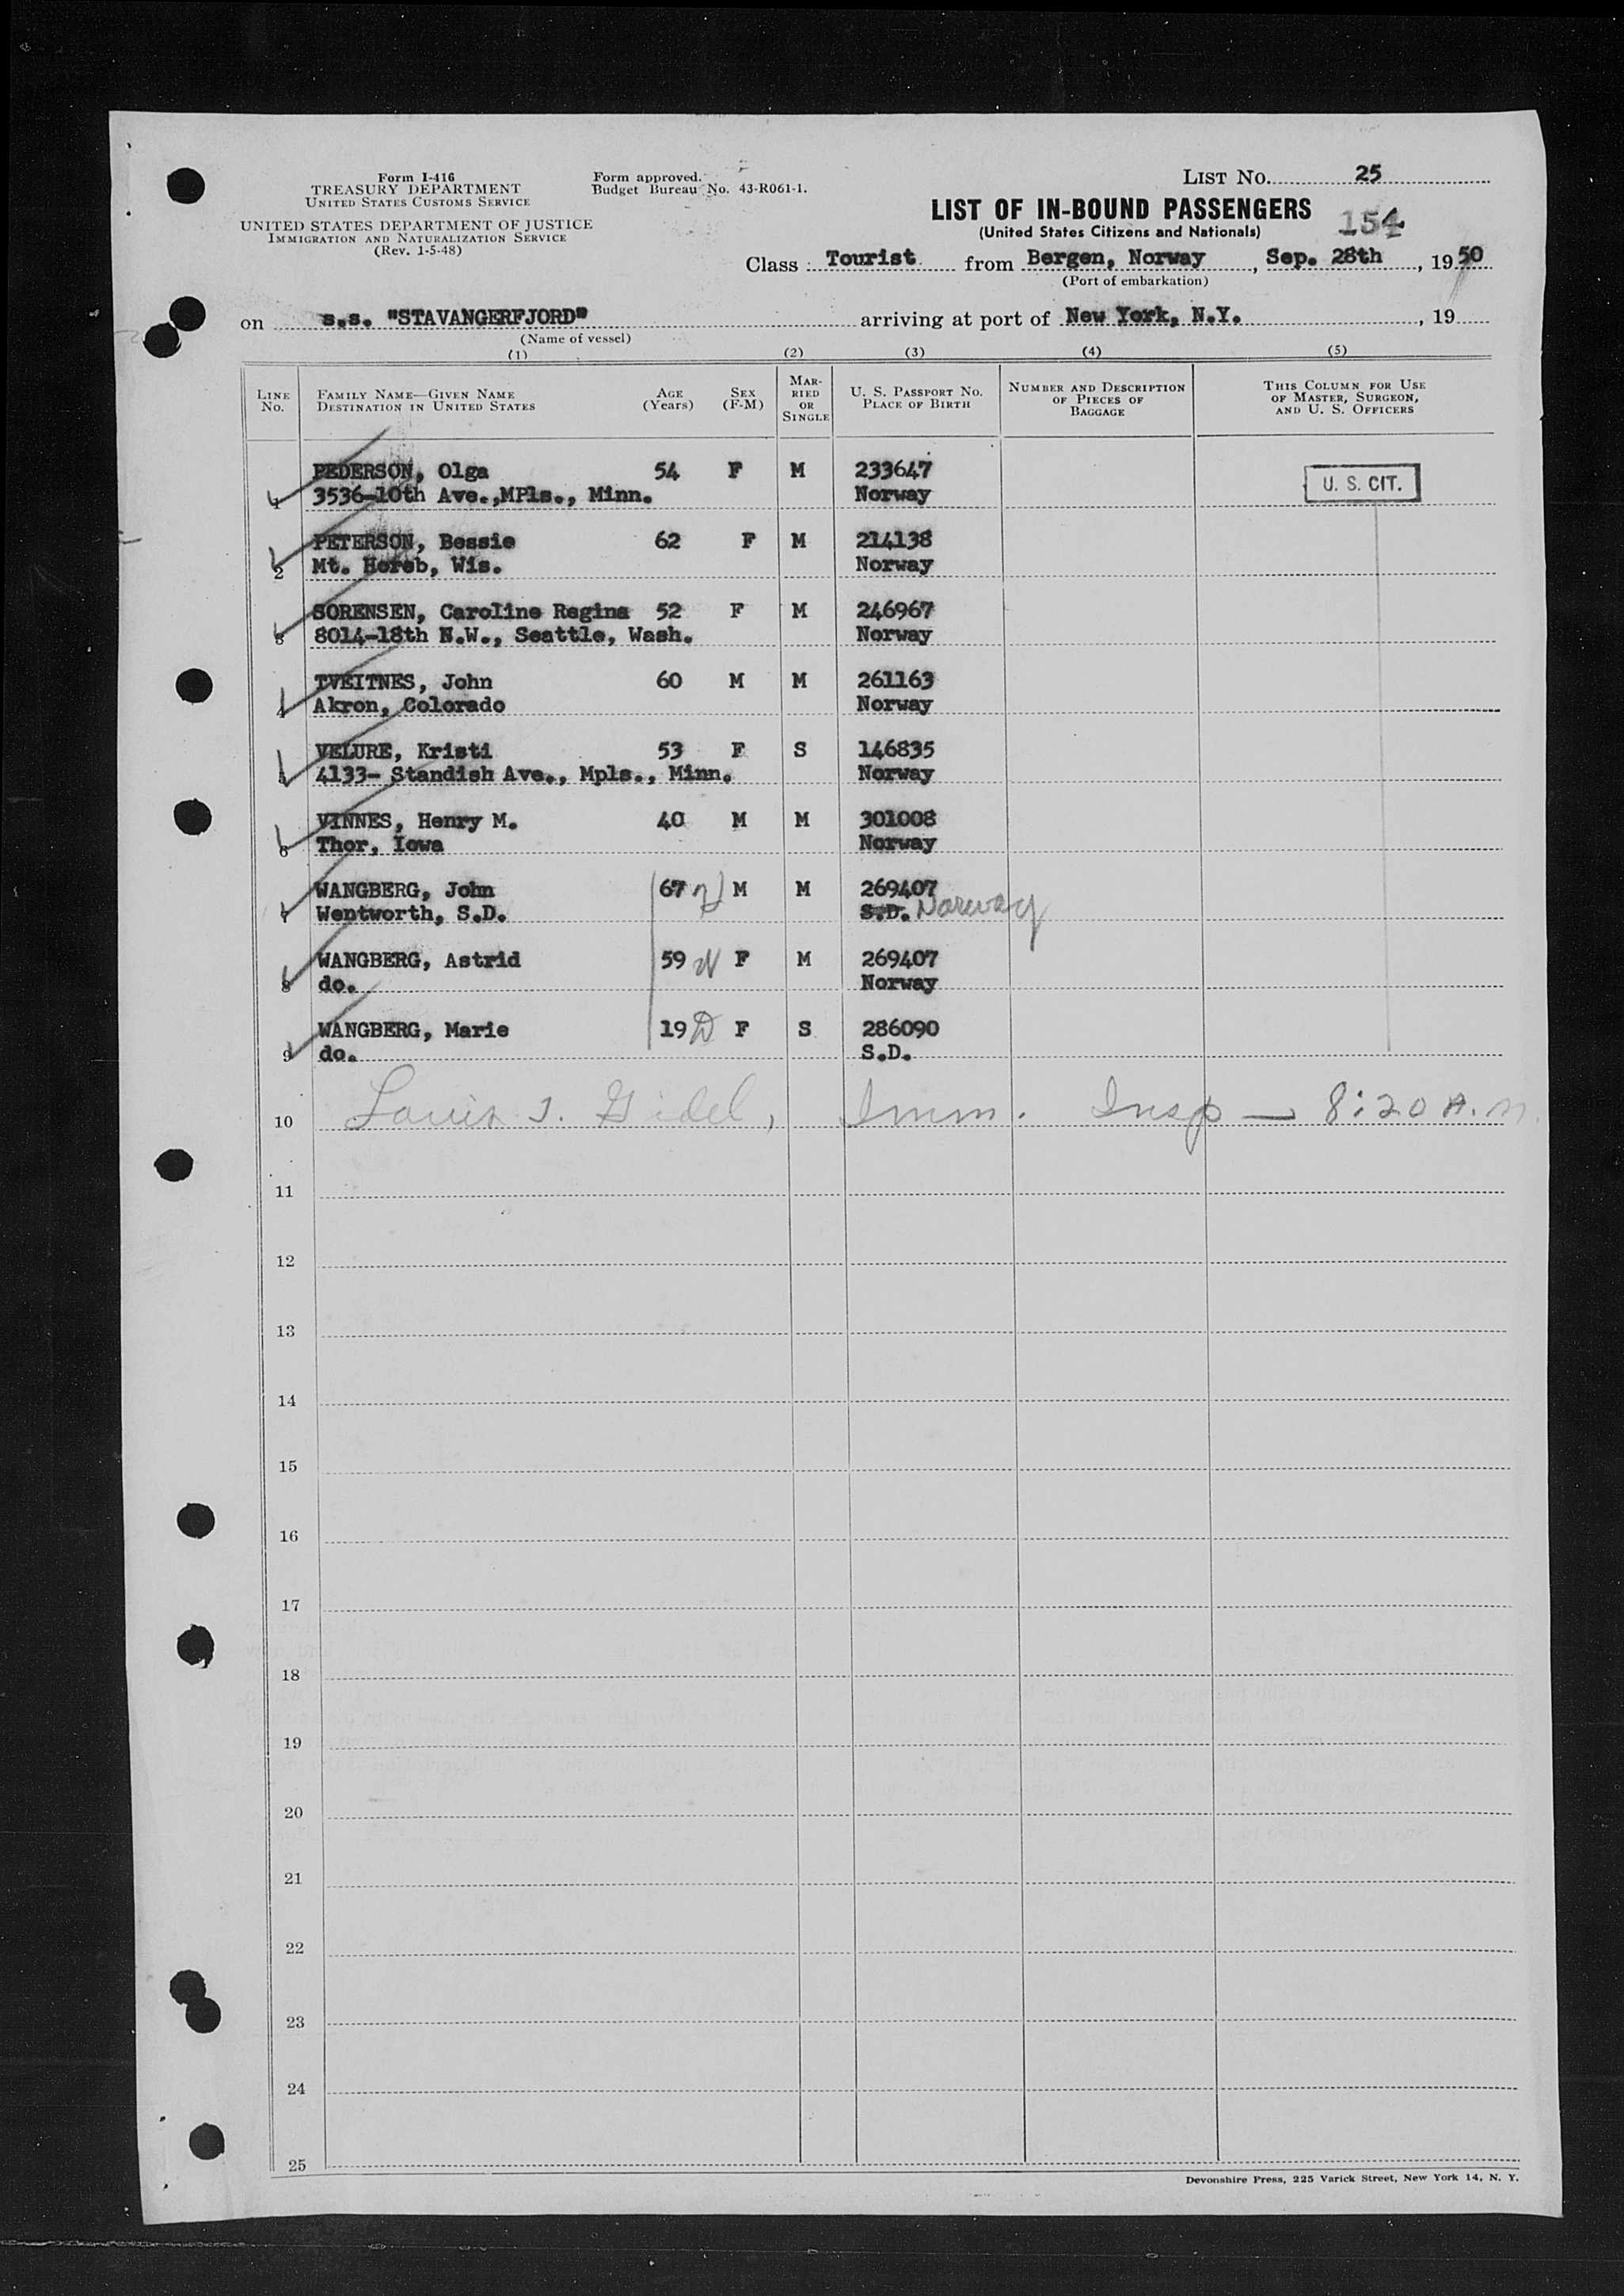 Form I-416
TREASURY DEPARTMENT
UNITED STATES CUSTOMS SERVICE
UNITED STATES DEPARTMENT OF JUSTICE
IMMIGRATION AND NATURALIZATION SERVICE
(Rev. 1-5-48)
Form approved.
Budget Bureau No. 43-R061-1.
LIST NO. 25
LIST OF IN-BOUND PASSENGERS
(United States Citizens and Nationals)
154
Class : Tourist from Bergen, Norway, Sep. 28th, 1950
(Port of embarkation)
on s.s. "STAVANGERFJORD" arriving at port of New York, N.Y., 19
(Name of vessel)
(1) (2) (3) (4) (5)
LINE NO. FAMILY NAME—GIVEN NAME DESTINATION IN UNITED STATES AGE (Years) SEX (F-M) MARRIED OR SINGLE U. S. PASSPORT NO. PLACE OF BIRTH NUMBER AND DESCRIPTION OF PIECES OF BAGGAGE THIS COLUMN FOR USE OF MASTER, SURGEON, AND U. S. OFFICERS
PEDERSON, Olga 54 F M 233647 U. S. CIT.
1 3536-10th Ave.,MPls., Minn. Norway
PETERSON, Bessie 62 F M 214138
2 Mt. Horeb, Wis. Norway
SORENSEN, Caroline Regina 52 F M 246967
3 8014-18th N.W., Seattle, Wash. Norway
TVEITNES, John 60 M M 261163
4 Akron, Colorado Norway
VELURE, Kristi 53 F S 146835
5 4133- Standish Ave., Mpls., Minn. Norway
VINNES, Henry M. 40 M M 301008
6 Thor, Iowa Norway
WANGBERG, John 67 M M 269407
7 Wentworth, S.D. S.D. Norway
WANGBERG, Astrid 59 N F M 269407
8 do. Norway
WANGBERG, Marie 19 F S 286090
9 do. S.D.
10 Louis J. Gidel, Imm. Insp — 8:20 A.M.
11
12
13
14
15
16
17
18
19
20
21
22
23
24
25
Devonshire Press, 225 Varick Street, New York 14, N. Y.